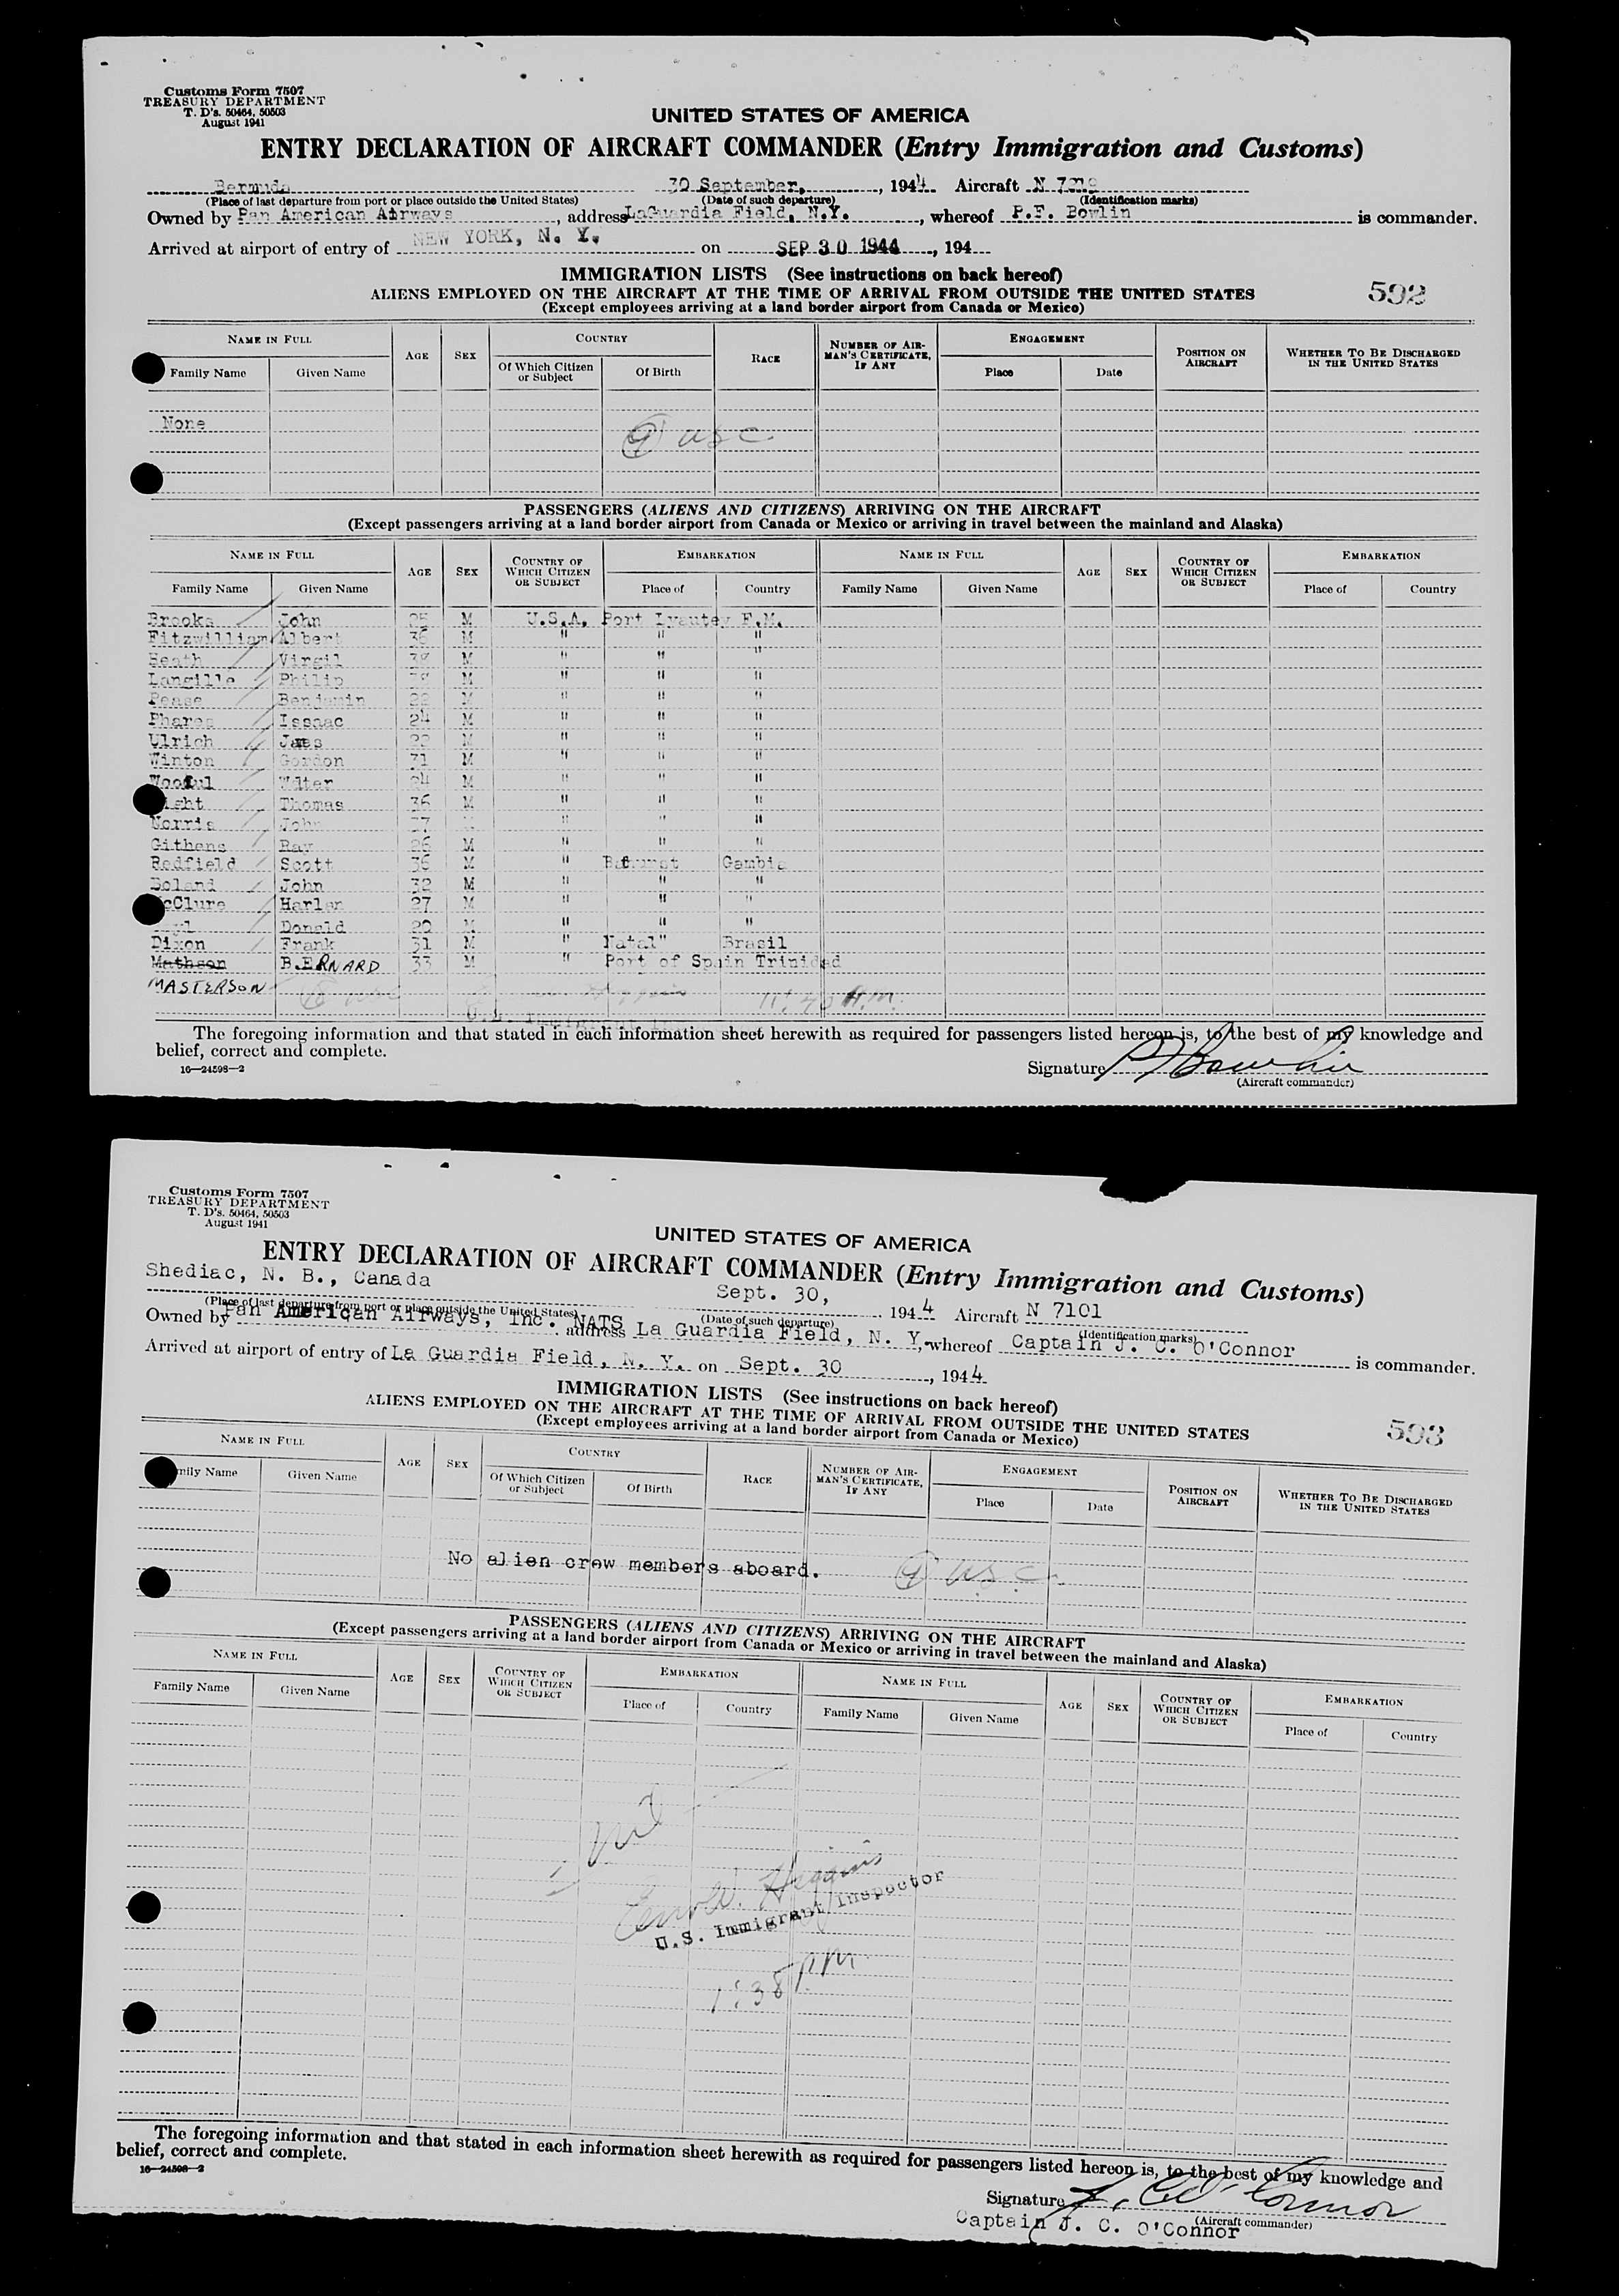 Customs Form 7507
TREASURY DEPARTMENT
T. D's. 50464, 50503
August 1941
UNITED STATES OF AMERICA
ENTRY DECLARATION OF AIRCRAFT COMMANDER (Entry Immigration and Customs)
Bermuda 30 September, , 1944 Aircraft N
(Place of last departure from port or place outside the United States) (Date of such departure) (Identification marks)
Owned by Pan American Airways , address LaGuardia Field, N.Y. , whereof P.F. Bowlin is commander.
Arrived at airport of entry of NEW YORK, N. Y. on SEP 30 1944 , 194
IMMIGRATION LISTS (See instructions on back hereof)
ALIENS EMPLOYED ON THE AIRCRAFT AT THE TIME OF ARRIVAL FROM OUTSIDE THE UNITED STATES
592
(Except employees arriving at a land border airport from Canada or Mexico)
NAME IN FULL AGE SEX COUNTRY RACE NUMBER OF AIRMAN'S CERTIFICATE, IF ANY ENGAGEMENT POSITION ON AIRCRAFT WHETHER TO BE DISCHARGED IN THE UNITED STATES
Family Name Given Name Of Which Citizen or Subject Of Birth Place Date
None
9 USC
PASSENGERS (ALIENS AND CITIZENS) ARRIVING ON THE AIRCRAFT
(Except passengers arriving at a land border airport from Canada or Mexico or arriving in travel between the mainland and Alaska)
NAME IN FULL AGE SEX COUNTRY OF WHICH CITIZEN OR SUBJECT EMBARKATION NAME IN FULL AGE SEX COUNTRY OF WHICH CITIZEN OR SUBJECT EMBARKATION
Family Name Given Name Place of Country Family Name Given Name Place of Country
Brooks John 25 M U.S.A. Port Lyautey F.M.
Fitzwilliam Albert 36 M " " "
Heath Virgil 38 M " " "
Langille Philip M " " "
Pease Benjamin 22 M " " "
Phares Issaac 24 M " " "
Ulrich James 22 M " " "
Winton Gordon 31 M " " "
Wilter 24 M " " "
Thomas 36 M " " "
Norris John " " "
Githens Ray 26 M " " "
Redfield Scott 36 M " Bathurst Gambia
Boland John 32 M " " "
McClure Harlan 27 M " " "
Donald 20 M " " "
Dixon Frank 31 M " Natal" Brasil
Mathson B.ERNARD 33 M " Port of Spain Trinidad
MASTERSON
11:40 A.M.
The foregoing information and that stated in each information sheet herewith as required for passengers listed hereon is, to the best of my knowledge and
belief, correct and complete.
16—24598—2
Signature P F Bowlin
(Aircraft commander)
Customs Form 7507
TREASURY DEPARTMENT
T. D's. 50464, 50503
August 1941
UNITED STATES OF AMERICA
ENTRY DECLARATION OF AIRCRAFT COMMANDER (Entry Immigration and Customs)
Shediac, N. B., Canada Sept. 30, 1944 Aircraft N 7101
(Place of last departure from port or place outside the United States) (Date of such departure) (Identification marks)
Owned by Pan American Airways, Inc. NATS address La Guardia Field, N. Y., whereof Captain J. C. O'Connor is commander.
Arrived at airport of entry of La Guardia Field, N. Y. on Sept. 30 , 1944
IMMIGRATION LISTS (See instructions on back hereof)
ALIENS EMPLOYED ON THE AIRCRAFT AT THE TIME OF ARRIVAL FROM OUTSIDE THE UNITED STATES
593
(Except employees arriving at a land border airport from Canada or Mexico)
NAME IN FULL AGE SEX COUNTRY RACE NUMBER OF AIRMAN'S CERTIFICATE, IF ANY ENGAGEMENT POSITION ON AIRCRAFT WHETHER TO BE DISCHARGED IN THE UNITED STATES
Family Name Given Name Of Which Citizen or Subject Of Birth Place Date
No alien crew members aboard. 9 USC
PASSENGERS (ALIENS AND CITIZENS) ARRIVING ON THE AIRCRAFT
(Except passengers arriving at a land border airport from Canada or Mexico or arriving in travel between the mainland and Alaska)
NAME IN FULL AGE SEX COUNTRY OF WHICH CITIZEN OR SUBJECT EMBARKATION NAME IN FULL AGE SEX COUNTRY OF WHICH CITIZEN OR SUBJECT EMBARKATION
Family Name Given Name Place of Country Family Name Given Name Place of Country
— nil —
Higgins
U.S. Immigrant Inspector
1:38 PM
The foregoing information and that stated in each information sheet herewith as required for passengers listed hereon is, to the best of my knowledge and
belief, correct and complete.
16—24598—2
Signature J. C. O'Connor
(Aircraft commander)
Captain J. C. O'Connor